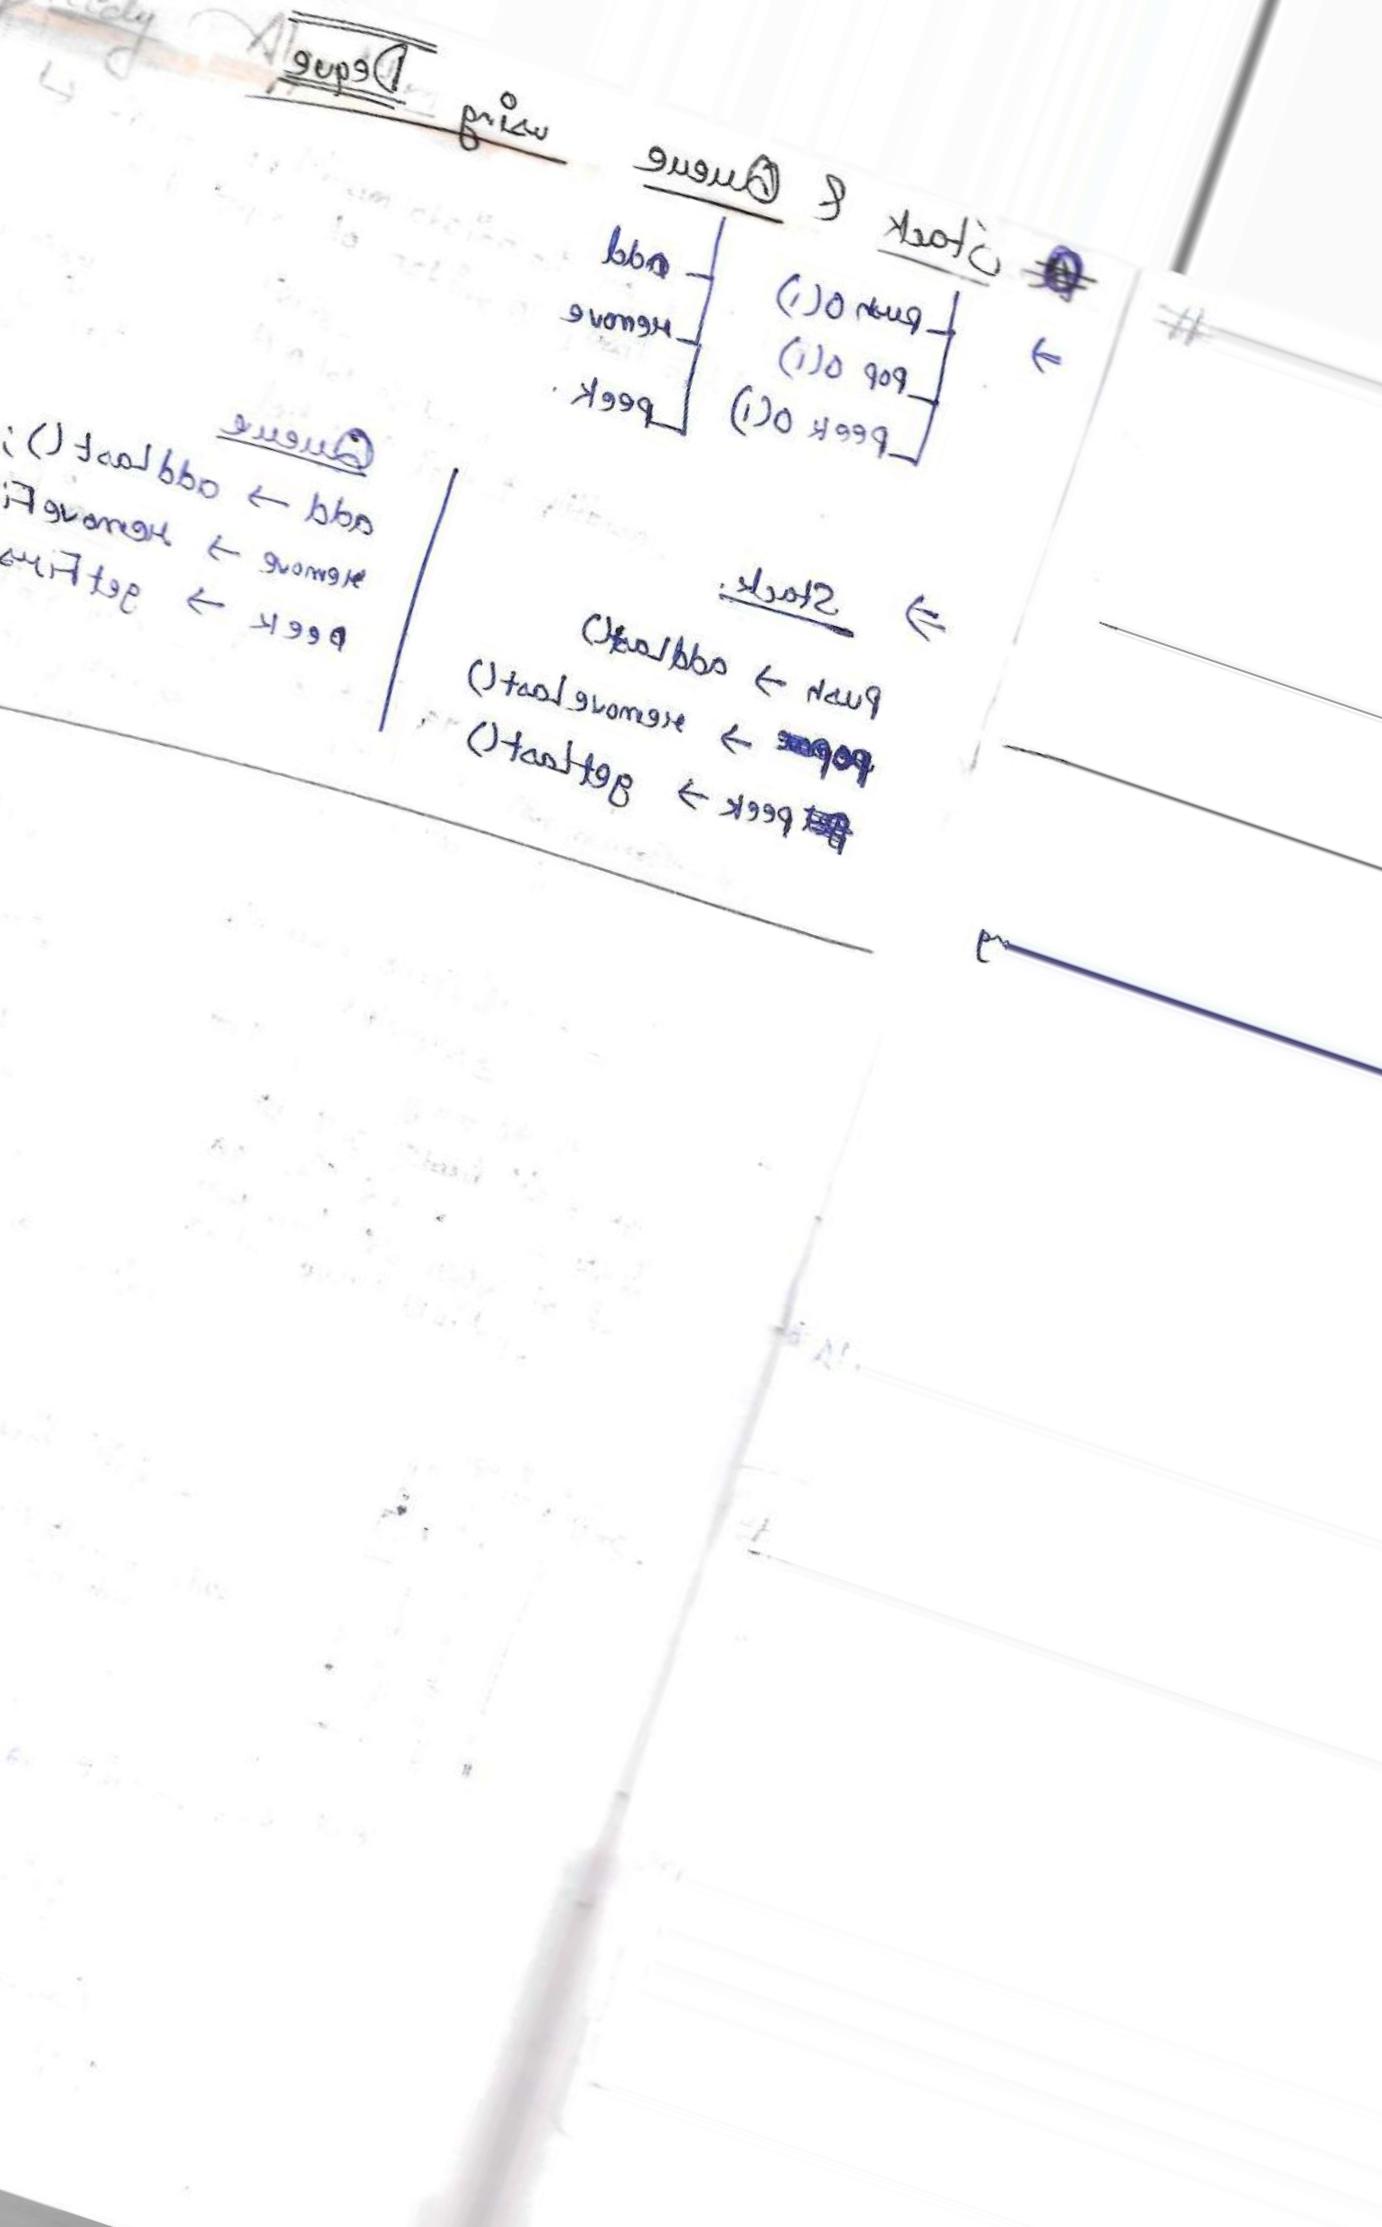 Stack & Queue using Deque
→ push O(1) add
pop O(1) remove
peek O(1) peek.
⇒ Stack:
push → addLast()
pop → removeLast()
peek → getLast()
Queue
add → addLast();
remove → removeFi
peek → getFirs
#